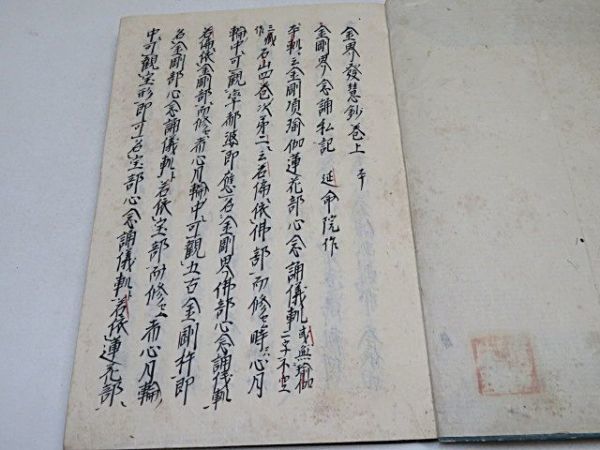 金界發慧鈔卷上 本
金剛界念誦私記 延命院作
本軌云金剛頂瑜伽蓮花部心念誦儀軌 或無瑜伽二字不空
三藏作 石山四卷次第二云若偏依佛部而修之時心月
輪中可觀率都婆即應名金剛界佛部心念誦儀軌
若偏依金剛部而修之者心月輪中可觀五古金剛杵即
名金剛部心念誦儀軌若依宝部而修之者心月輪
中可觀宝形即可名宝部心念誦儀軌若依蓮花部